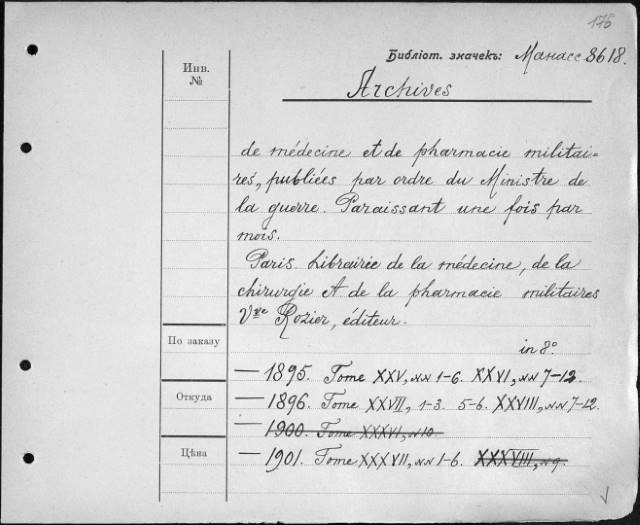 176
Библіот. значекъ: Манасс 8618.
Инв.
№
Archives
de médecine et de pharmacie militai=
res, publiées par ordre du Ministre de
la guerre. Paraissant une fois par
mois.
Paris. Librairie de la médecine, de la
chirurgie et de la pharmacie militaires
Vve Rozier, éditeur.
in 8°.
По заказу
— 1895. Tome XXV, NN 1-6. XXVI, NN 7-12.
Откуда
— 1896. Tome XXVII, 1-3. 5-6. XXVIII, NN 7-12.
— 1900. Tome XXXVI, N 10.
Цѣна
— 1901. Tome XXXVII, NN 1-6. XXXVIII, N 9.